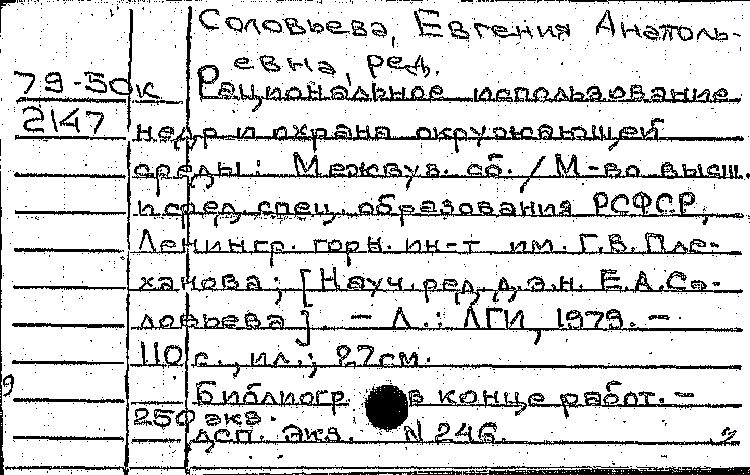 Соловьева, Евгения Анатоль-
евна, ред.
79-50к Рациональное использование
2147 недр и охрана окружающей
среды: Межвуз. сб. / М-во высш.
и сред. спец. образования РСФСР,
Ленингр. горн. ин-т им. Г.В. Пле-
ханова; [Науч. ред. д.э.н. Е.А. Со-
ловьева]. – Л.: ЛГИ, 1979. –
110 с., ил.; 27 см.
Библиогр. в конце работ. –
250 экз.
деп. экз. N 246.